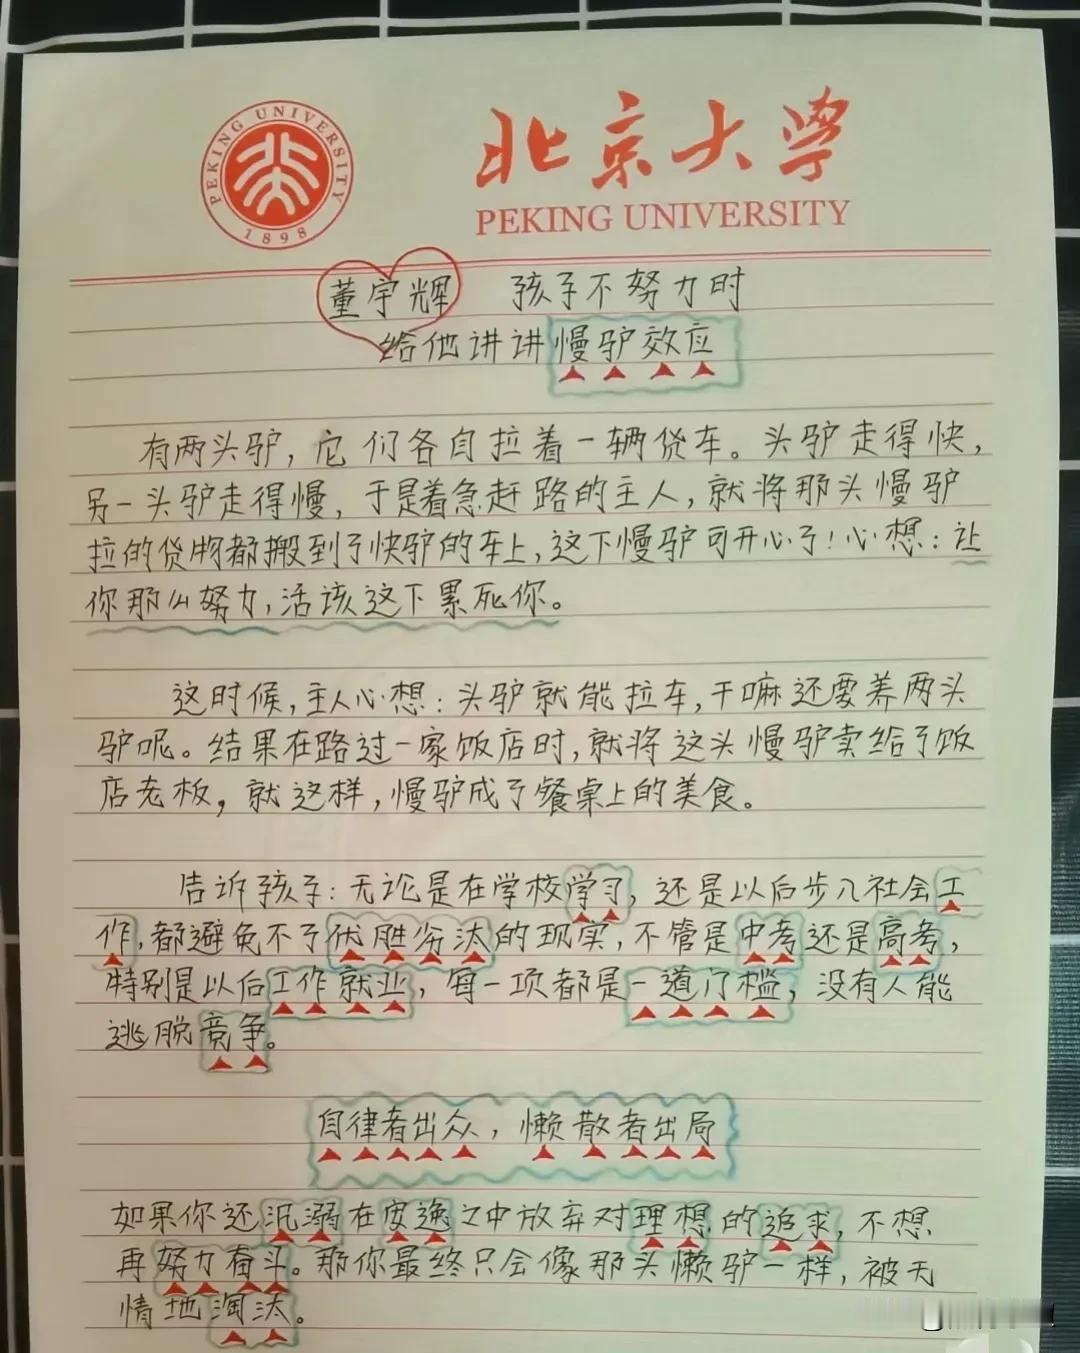 PEKING UNIVERSITY
1898
北京大学
PEKING UNIVERSITY
董宇辉 孩子不努力时
给他讲讲慢驴效应
有两头驴，它们各自拉着一辆货车。头驴走得快，
另一头驴走得慢，于是着急赶路的主人，就将那头慢驴
拉的货物都搬到了快驴的车上，这下慢驴可开心了！心想：让
你那么努力，活该这下累死你。
这时候，主人心想：头驴就能拉车，干嘛还要养两头
驴呢。结果在路过一家饭店时，就将这头慢驴卖给了饭
店老板，就这样，慢驴成了餐桌上的美食。
告诉孩子：无论是在学校学习，还是以后步入社会工
作，都避免不了优胜劣汰的现实，不管是中考还是高考，
特别是以后工作就业，每一项都是一道门槛，没有人能
逃脱竞争。
自律者出众，懒散者出局
如果你还沉溺在安逸之中放弃对理想的追求，不想
再努力奋斗。那你最终只会像那头懒驴一样，被无
情地淘汰。